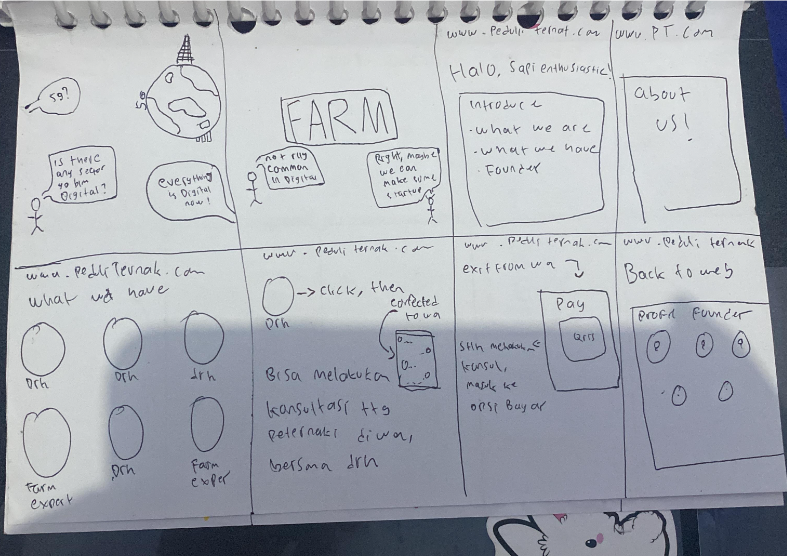 5G?
5G
Is there
any sector
to bim
Digital?
everything
is Digital
now!
FARM
not rlly
common
in Digital
Right, maybe
we can
make some
startup
www.Peduli Ternat.com
Halo, Sapi enthusiastic!
Introduce
• what we are
• what we have
• Founder
www.PT.com
about
us!
www.PeduliTernak.com
what we have
Drh
Drh
drh
Farm
expert
Drh
Farm
exper
www.Peduli ternak.com
Drh
→ click, then
conected
to wa
Bisa melakukan
konsultasi ttg
Peternak di wa,
bersma drh
www.Peduli ternak.com
exit from wa
Pay
Qris
Stlh
konsul,
masuk ke
opsi Bayar
www.Peduli ternak
Back to web
Profil Founder